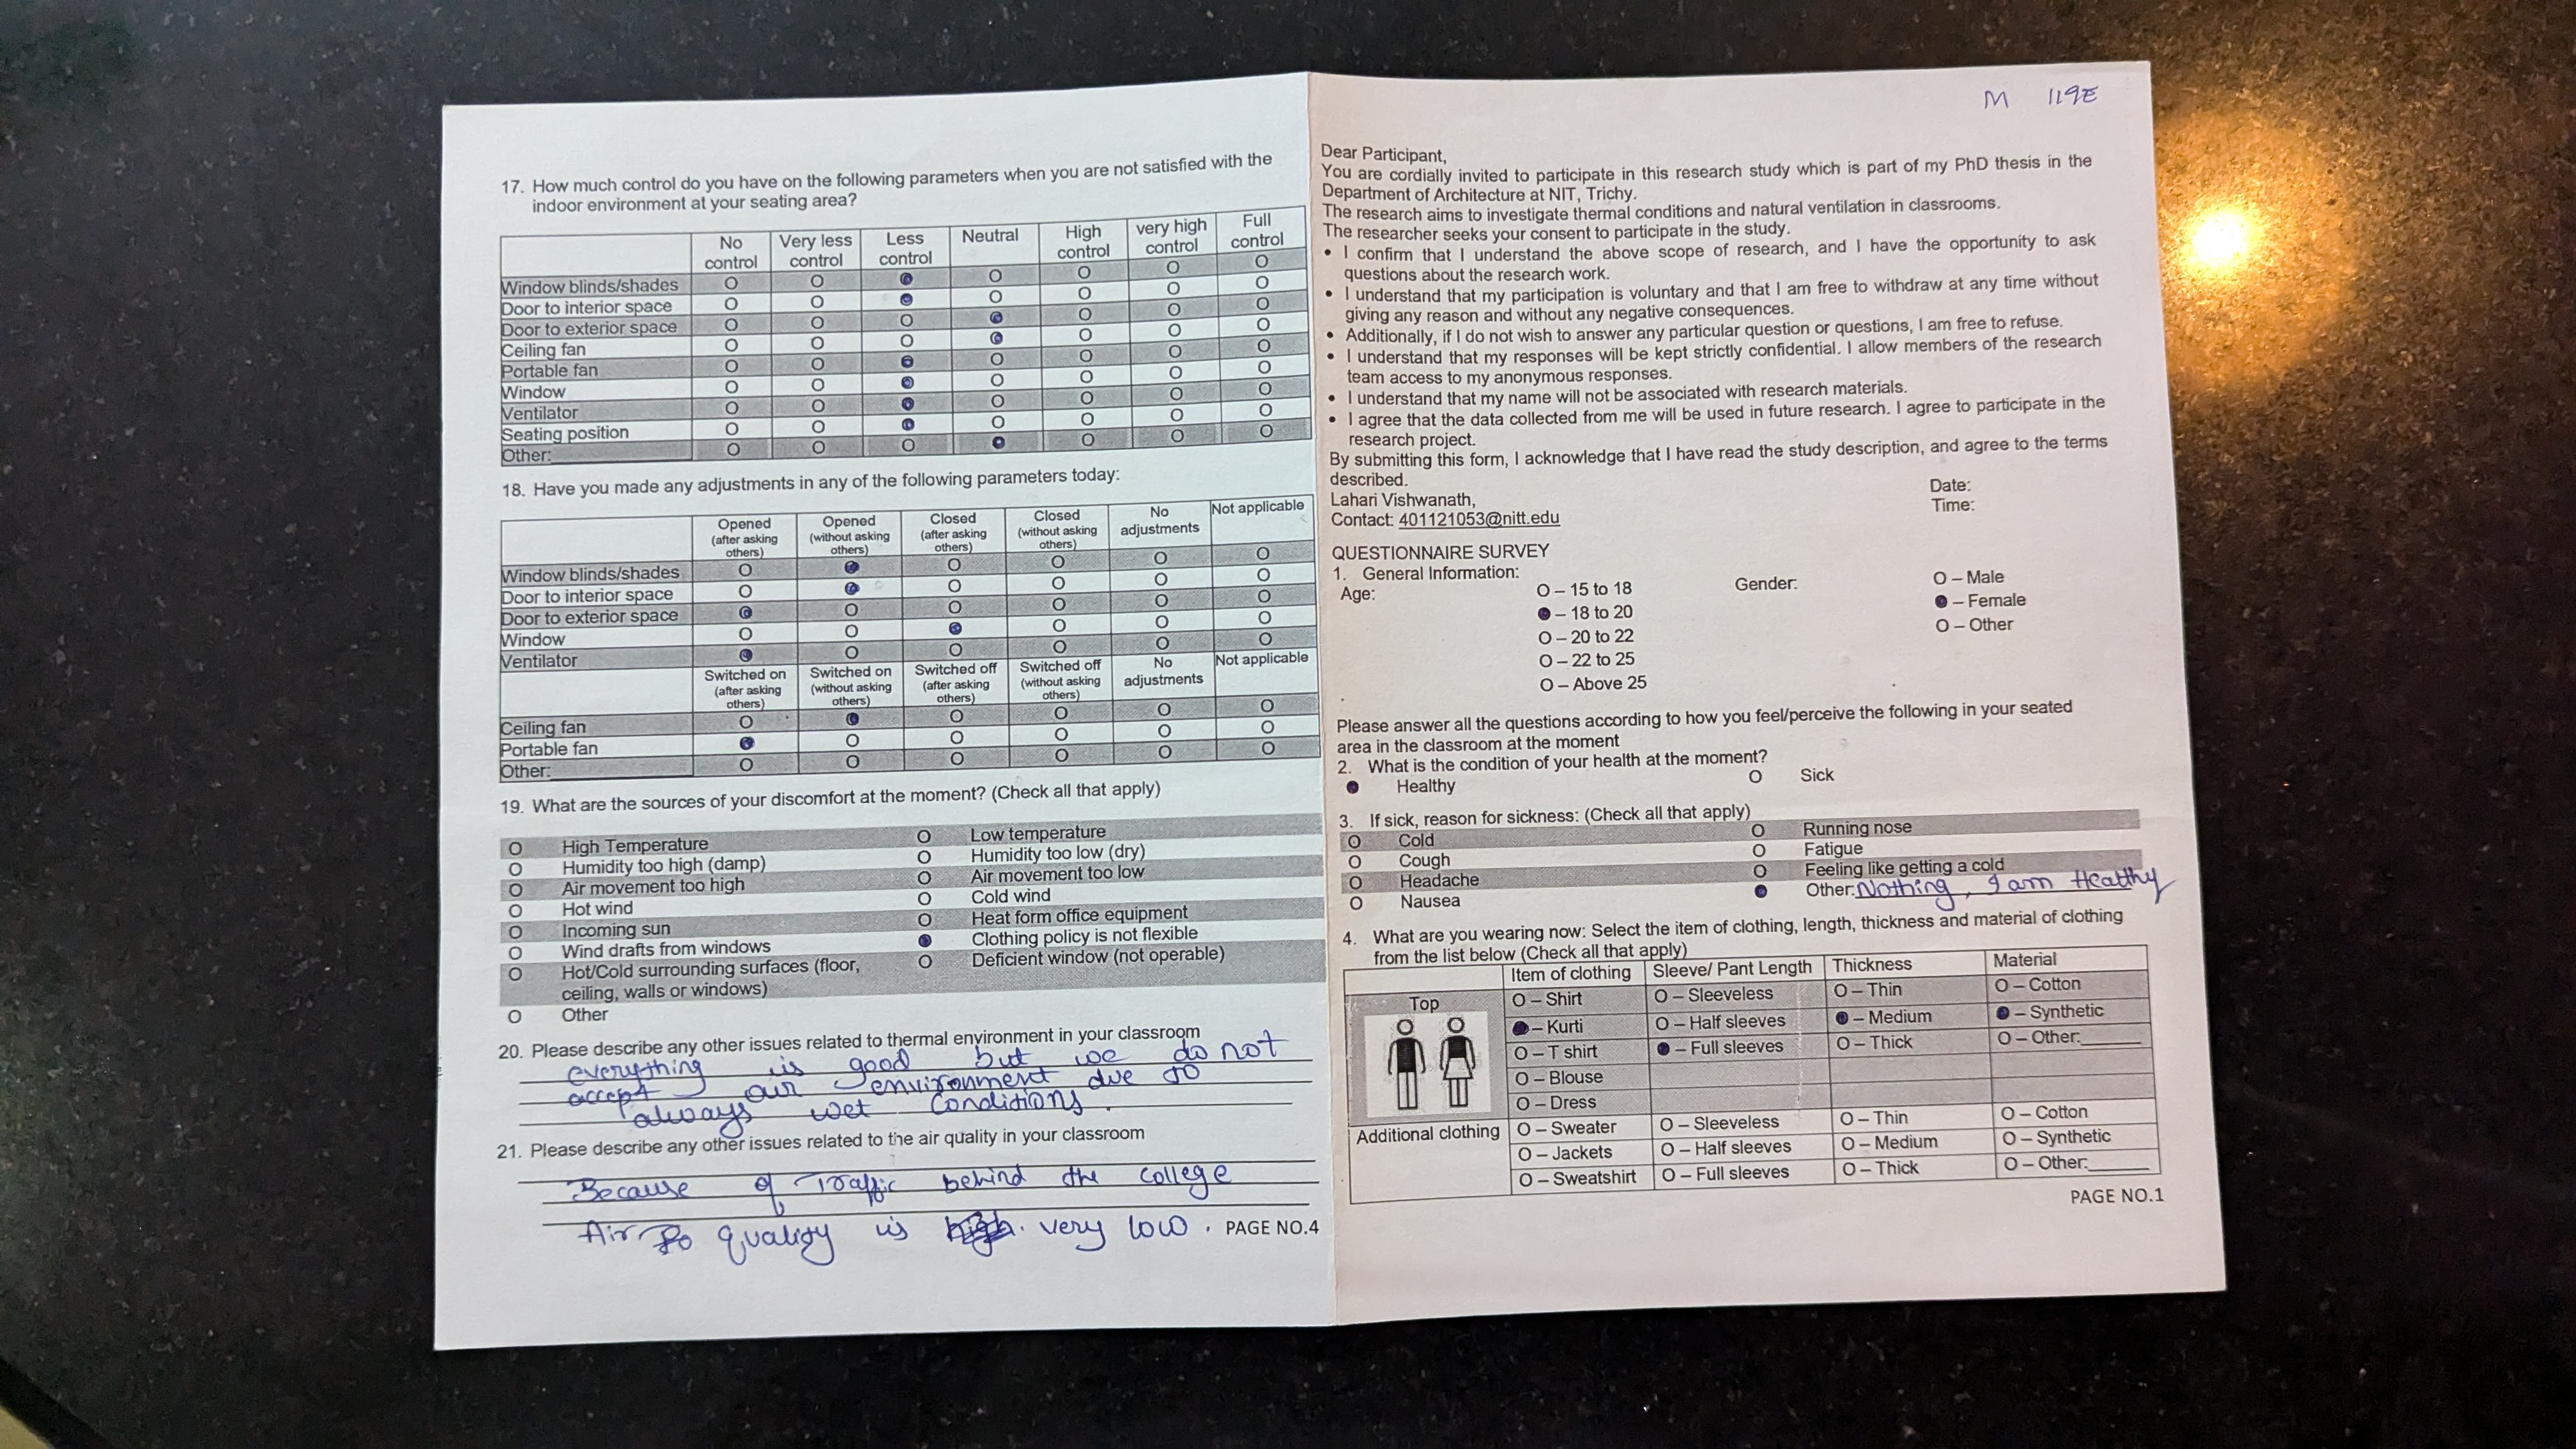 17. How much control do you have on the following parameters when you are not satisfied with the
indoor environment at your seating area?
No control Very less control Less control Neutral High control very high control Full control
Window blinds/shades O O O O O O
Door to interior space O O O O O O
Door to exterior space O O O O O O
Ceiling fan O O O O O O
Portable fan O O O O O O
Window O O O O O O
Ventilator O O O O O O
Seating position O O O O O O
Other: O O O O O O
18. Have you made any adjustments in any of the following parameters today:
Opened (after asking others) Opened (without asking others) Closed (after asking others) Closed (without asking others) No adjustments Not applicable
Window blinds/shades O O O O O
Door to interior space O O O O O
Door to exterior space O O O O O
Window O O O O O
Ventilator O O O O O
Switched on (after asking others) Switched on (without asking others) Switched off (after asking others) Switched off (without asking others) No adjustments Not applicable
Ceiling fan O O O O O
Portable fan O O O O O
Other: O O O O O O
19. What are the sources of your discomfort at the moment? (Check all that apply)
O High Temperature O Low temperature
O Humidity too high (damp) O Humidity too low (dry)
O Air movement too high O Air movement too low
O Hot wind O Cold wind
O Incoming sun O Heat form office equipment
O Wind drafts from windows Clothing policy is not flexible
O Hot/Cold surrounding surfaces (floor, O Deficient window (not operable)
ceiling, walls or windows)
O Other
20. Please describe any other issues related to thermal environment in your classroom
everything is good but we do not
accept our environment due to
always wet conditions.
21. Please describe any other issues related to the air quality in your classroom
Because of Traffic behind the college
Air quality is very low.
PAGE NO.4
M 119E
Dear Participant,
You are cordially invited to participate in this research study which is part of my PhD thesis in the
Department of Architecture at NIT, Trichy.
The research aims to investigate thermal conditions and natural ventilation in classrooms.
The researcher seeks your consent to participate in the study.
• I confirm that I understand the above scope of research, and I have the opportunity to ask
questions about the research work.
• I understand that my participation is voluntary and that I am free to withdraw at any time without
giving any reason and without any negative consequences.
• Additionally, if I do not wish to answer any particular question or questions, I am free to refuse.
• I understand that my responses will be kept strictly confidential. I allow members of the research
team access to my anonymous responses.
• I understand that my name will not be associated with research materials.
• I agree that the data collected from me will be used in future research. I agree to participate in the
research project.
By submitting this form, I acknowledge that I have read the study description, and agree to the terms
described.
Lahari Vishwanath, Date:
Contact: 401121053@nitt.edu Time:
QUESTIONNAIRE SURVEY
1. General Information:
Age: O – 15 to 18 Gender: O – Male
– 18 to 20 – Female
O – 20 to 22 O – Other
O – 22 to 25
O – Above 25
Please answer all the questions according to how you feel/perceive the following in your seated
area in the classroom at the moment
2. What is the condition of your health at the moment?
Healthy O Sick
3. If sick, reason for sickness: (Check all that apply)
O Cold O Running nose
O Cough O Fatigue
O Headache O Feeling like getting a cold
O Nausea Other: Nothing, I am Healthy
4. What are you wearing now: Select the item of clothing, length, thickness and material of clothing
from the list below (Check all that apply)
Item of clothing Sleeve/ Pant Length Thickness Material
Top O – Shirt O – Sleeveless O – Thin O – Cotton
– Kurti O – Half sleeves – Medium – Synthetic
O – T shirt – Full sleeves O – Thick O – Other:
O – Blouse
O – Dress
Additional clothing O – Sweater O – Sleeveless O – Thin O – Cotton
O – Jackets O – Half sleeves O – Medium O – Synthetic
O – Sweatshirt O – Full sleeves O – Thick O – Other:
PAGE NO.1